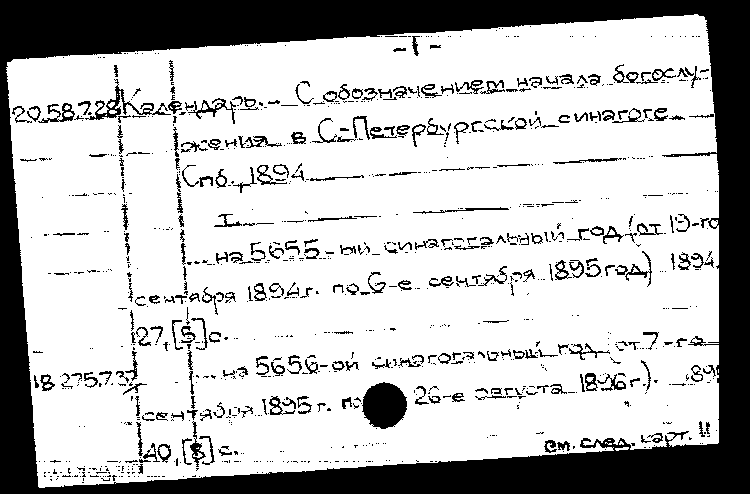 - 1 -
20.58.7.28 Календарь.- С обозначением начала богослу-
жения в С.-Петербургской синагоге
Спб., 1894
I.
... на 5655-ый синагогальный год (от 19-го
сентября 1894 г. по 6-е сентября 1895 год) 1894.
27, [5] с.
18.275.7.37 ... на 5656-ой синагогальный год (от 7-го
сентября 1895 г. по 26-е августа 1896 г.). 1895
40, [8] с.
см. след. карт. II